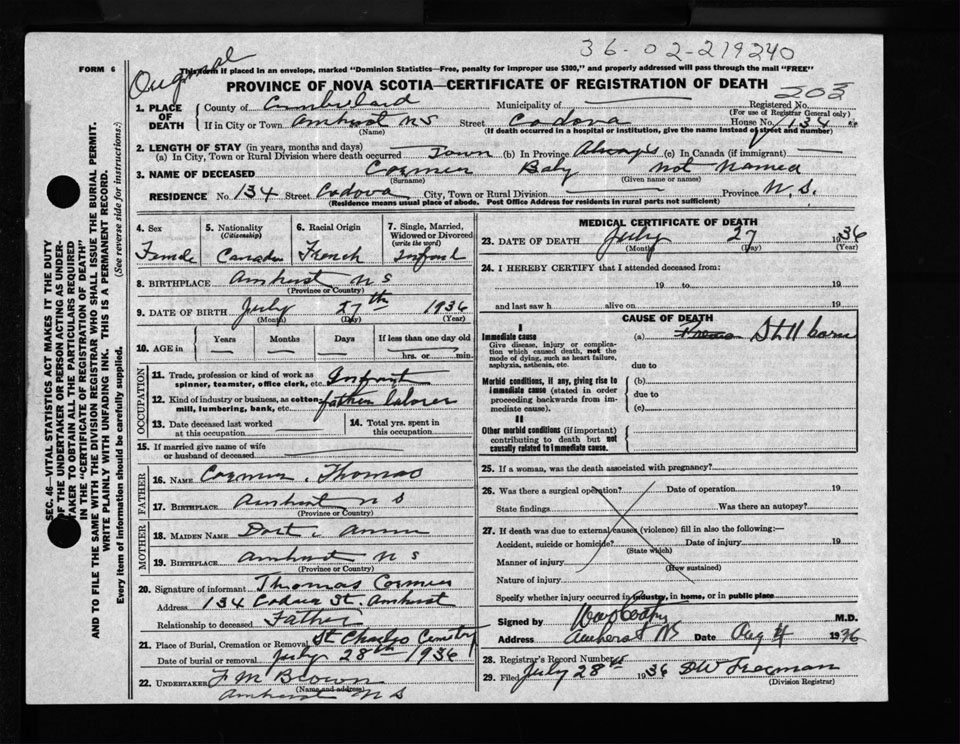 36-02-219240
Original
FORM 6
This form if placed in an envelope, marked "Dominion Statistics—Free, penalty for improper use $300," and properly addressed will pass through the mail "FREE"
PROVINCE OF NOVA SCOTIA—CERTIFICATE OF REGISTRATION OF DEATH
203
1. PLACE OF DEATH
County of Cumberland Municipality of Registered No.
(For use of Registrar General only)
If in City or Town Amherst NS Street Cadova House No. 134
(Name) (If death occurred in a hospital or institution, give the name instead of street and number)
2. LENGTH OF STAY (in years, months and days)
(a) In City, Town or Rural Division where death occurred Town (b) In Province Always (c) In Canada (if immigrant)
3. NAME OF DECEASED Cormier Baby not named
(Surname) (Given name or names)
RESIDENCE No. 134 Street Cadova City, Town or Rural Division Province N.S.
(Residence means usual place of abode. Post Office Address for residents in rural parts not sufficient)
4. Sex
5. Nationality (Citizenship)
6. Racial Origin
7. Single, Married, Widowed or Divorced (write the word)
Female Canadian French Infant
8. BIRTHPLACE Amherst NS
(Province or Country)
9. DATE OF BIRTH July 27th 1936
(Month) (Day) (Year)
10. AGE in Years Months Days If less than one day old
hrs. or min.
OCCUPATION
11. Trade, profession or kind of work as spinner, teamster, office clerk, etc. Infant
12. Kind of industry or business, as cotton mill, lumbering, bank, etc. father laborer
13. Date deceased last worked at this occupation
14. Total yrs. spent in this occupation
15. If married give name of wife or husband of deceased
FATHER
16. NAME Cormier, Thomas
17. BIRTHPLACE Amherst NS
(Province or Country)
MOTHER
18. MAIDEN NAME
19. BIRTHPLACE Amherst NS
(Province or Country)
20. Signature of informant Thomas Cormier
Address 134 St. Amherst
Relationship to deceased Father
21. Place of Burial, Cremation or Removal St Charles Cemetry
Date of burial or removal July 28th 1936
22. UNDERTAKER F M Brown
(Name and address)
Amherst NS
MEDICAL CERTIFICATE OF DEATH
23. DATE OF DEATH July 27 1936
(Month) (Day) (Year)
24. I HEREBY CERTIFY that I attended deceased from:
19 to 19
and last saw h alive on 19
CAUSE OF DEATH
I
Immediate cause
Give disease, injury or complication which caused death, not the mode of dying, such as heart failure, asphyxia, asthenia, etc.
(a) Stillborn
due to
Morbid conditions, if any, giving rise to immediate cause (stated in order proceeding backwards from immediate cause).
(b)
due to
(c)
II
Other morbid conditions (if important) contributing to death but not causally related to immediate cause.
25. If a woman, was the death associated with pregnancy?
26. Was there a surgical operation? Date of operation 19
State findings Was there an autopsy?
27. If death was due to external causes (violence) fill in also the following:—
Accident, suicide or homicide? Date of injury 19
(State which)
Manner of injury
(How sustained)
Nature of injury
Specify whether injury occurred in industry, in home, or in public place
Signed by M.D.
Address Amherst NS Date Aug 4 1936
28. Registrar's Record Number
29. Filed July 28th 1936 DW Freeman
(Division Registrar)
SEC. 46—VITAL STATISTICS ACT MAKES IT THE DUTY
OF THE UNDERTAKER OR PERSON ACTING AS UNDER-
TAKER TO OBTAIN ALL THE PARTICULARS REQUIRED
IN THE "CERTIFICATE OF REGISTRATION OF DEATH"
AND TO FILE THE SAME WITH THE DIVISION REGISTRAR WHO SHALL ISSUE THE BURIAL PERMIT.
WRITE PLAINLY WITH UNFADING INK. THIS IS A PERMANENT RECORD.
Every item of information should be carefully supplied. (See reverse side for instructions.)